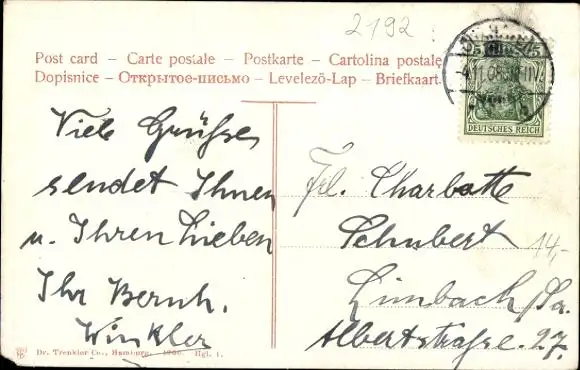 2192
Post card – Carte postale – Postkarte – Cartolina postale
Dopisnice – Открытое-письмо – Levelező-Lap – Briefkaart.
DEUTSCHES REICH
Viele Grüsse
sendet Ihnen
u. Ihren Lieben
Ihr Bernh.
Winkler
Frl. Charlotte
Schubert
Limbach/Sa.
Albertstraße. 27.
14,-
Dr. Trenkler Co., Hamburg. 1906. Hgl. 1.